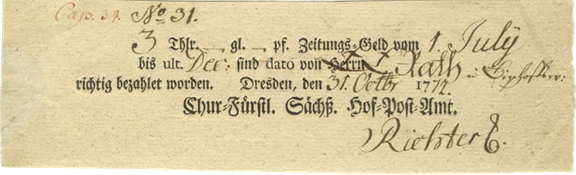 Cap. 34. No 31.
3 Thlr. — gl. — pf. Zeitungs-Geld vom 1. July
bis ult. Dec: sind dato von Herrn Rath
richtig bezahlet worden. Dresden, den 31. Octbr 1777.
Chur-Fürstl. Sächß. Hof-Post-Amt.
Richter